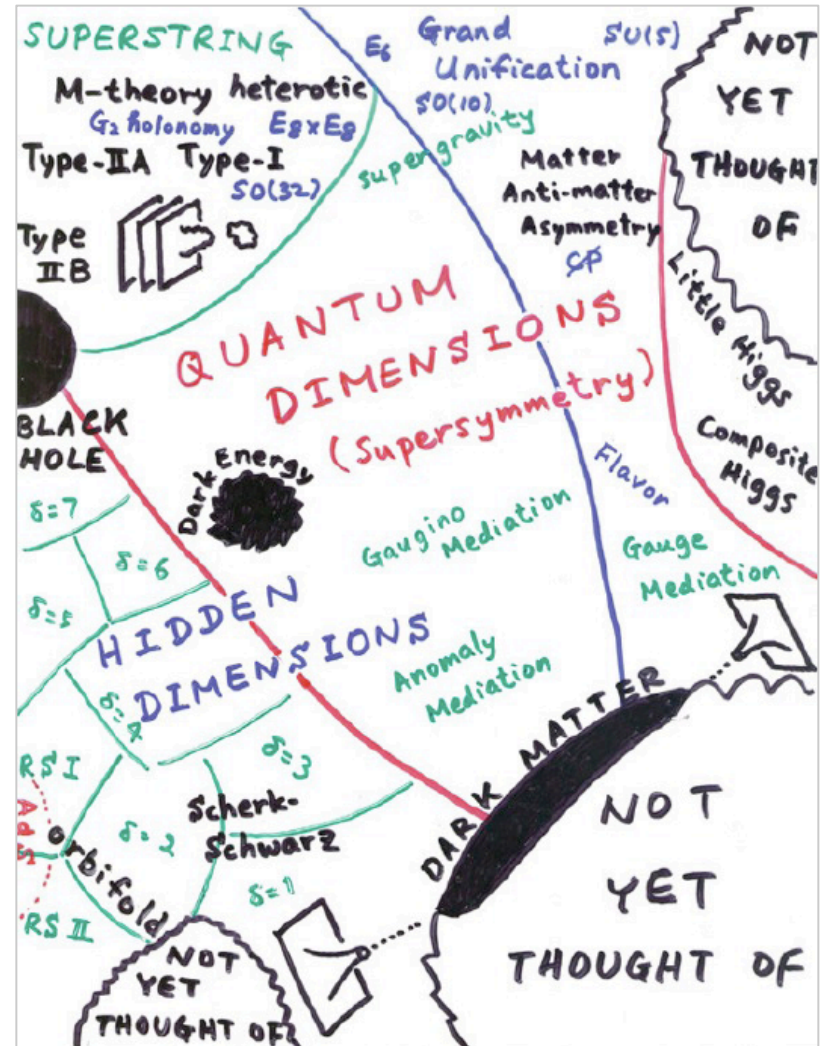 SUPERSTRING
M-theory heterotic
G₂ holonomy E8xE8
Type-IIA Type-I
SO(32)
Type
IIB
E₆ Grand
Unification
SU(5)
SO(10)
supergravity
Matter
Anti-matter
Asymmetry
C̸P̸
NOT
YET
THOUGHT
OF
Little Higgs
Composite
Higgs
QUANTUM
DIMENSIONS
(Supersymmetry)
BLACK
HOLE
Dark Energy
Flavor
Gaugino
Mediation
Gauge
Mediation
Anomaly
Mediation
δ=7
δ=6
δ=5
HIDDEN
DIMENSIONS
δ=4
δ=3
RS I
AdS
orbifold
δ=2
Scherk-
Schwarz
δ=1
RS II
DARK MATTER
NOT
YET
THOUGHT OF
NOT
YET
THOUGHT OF